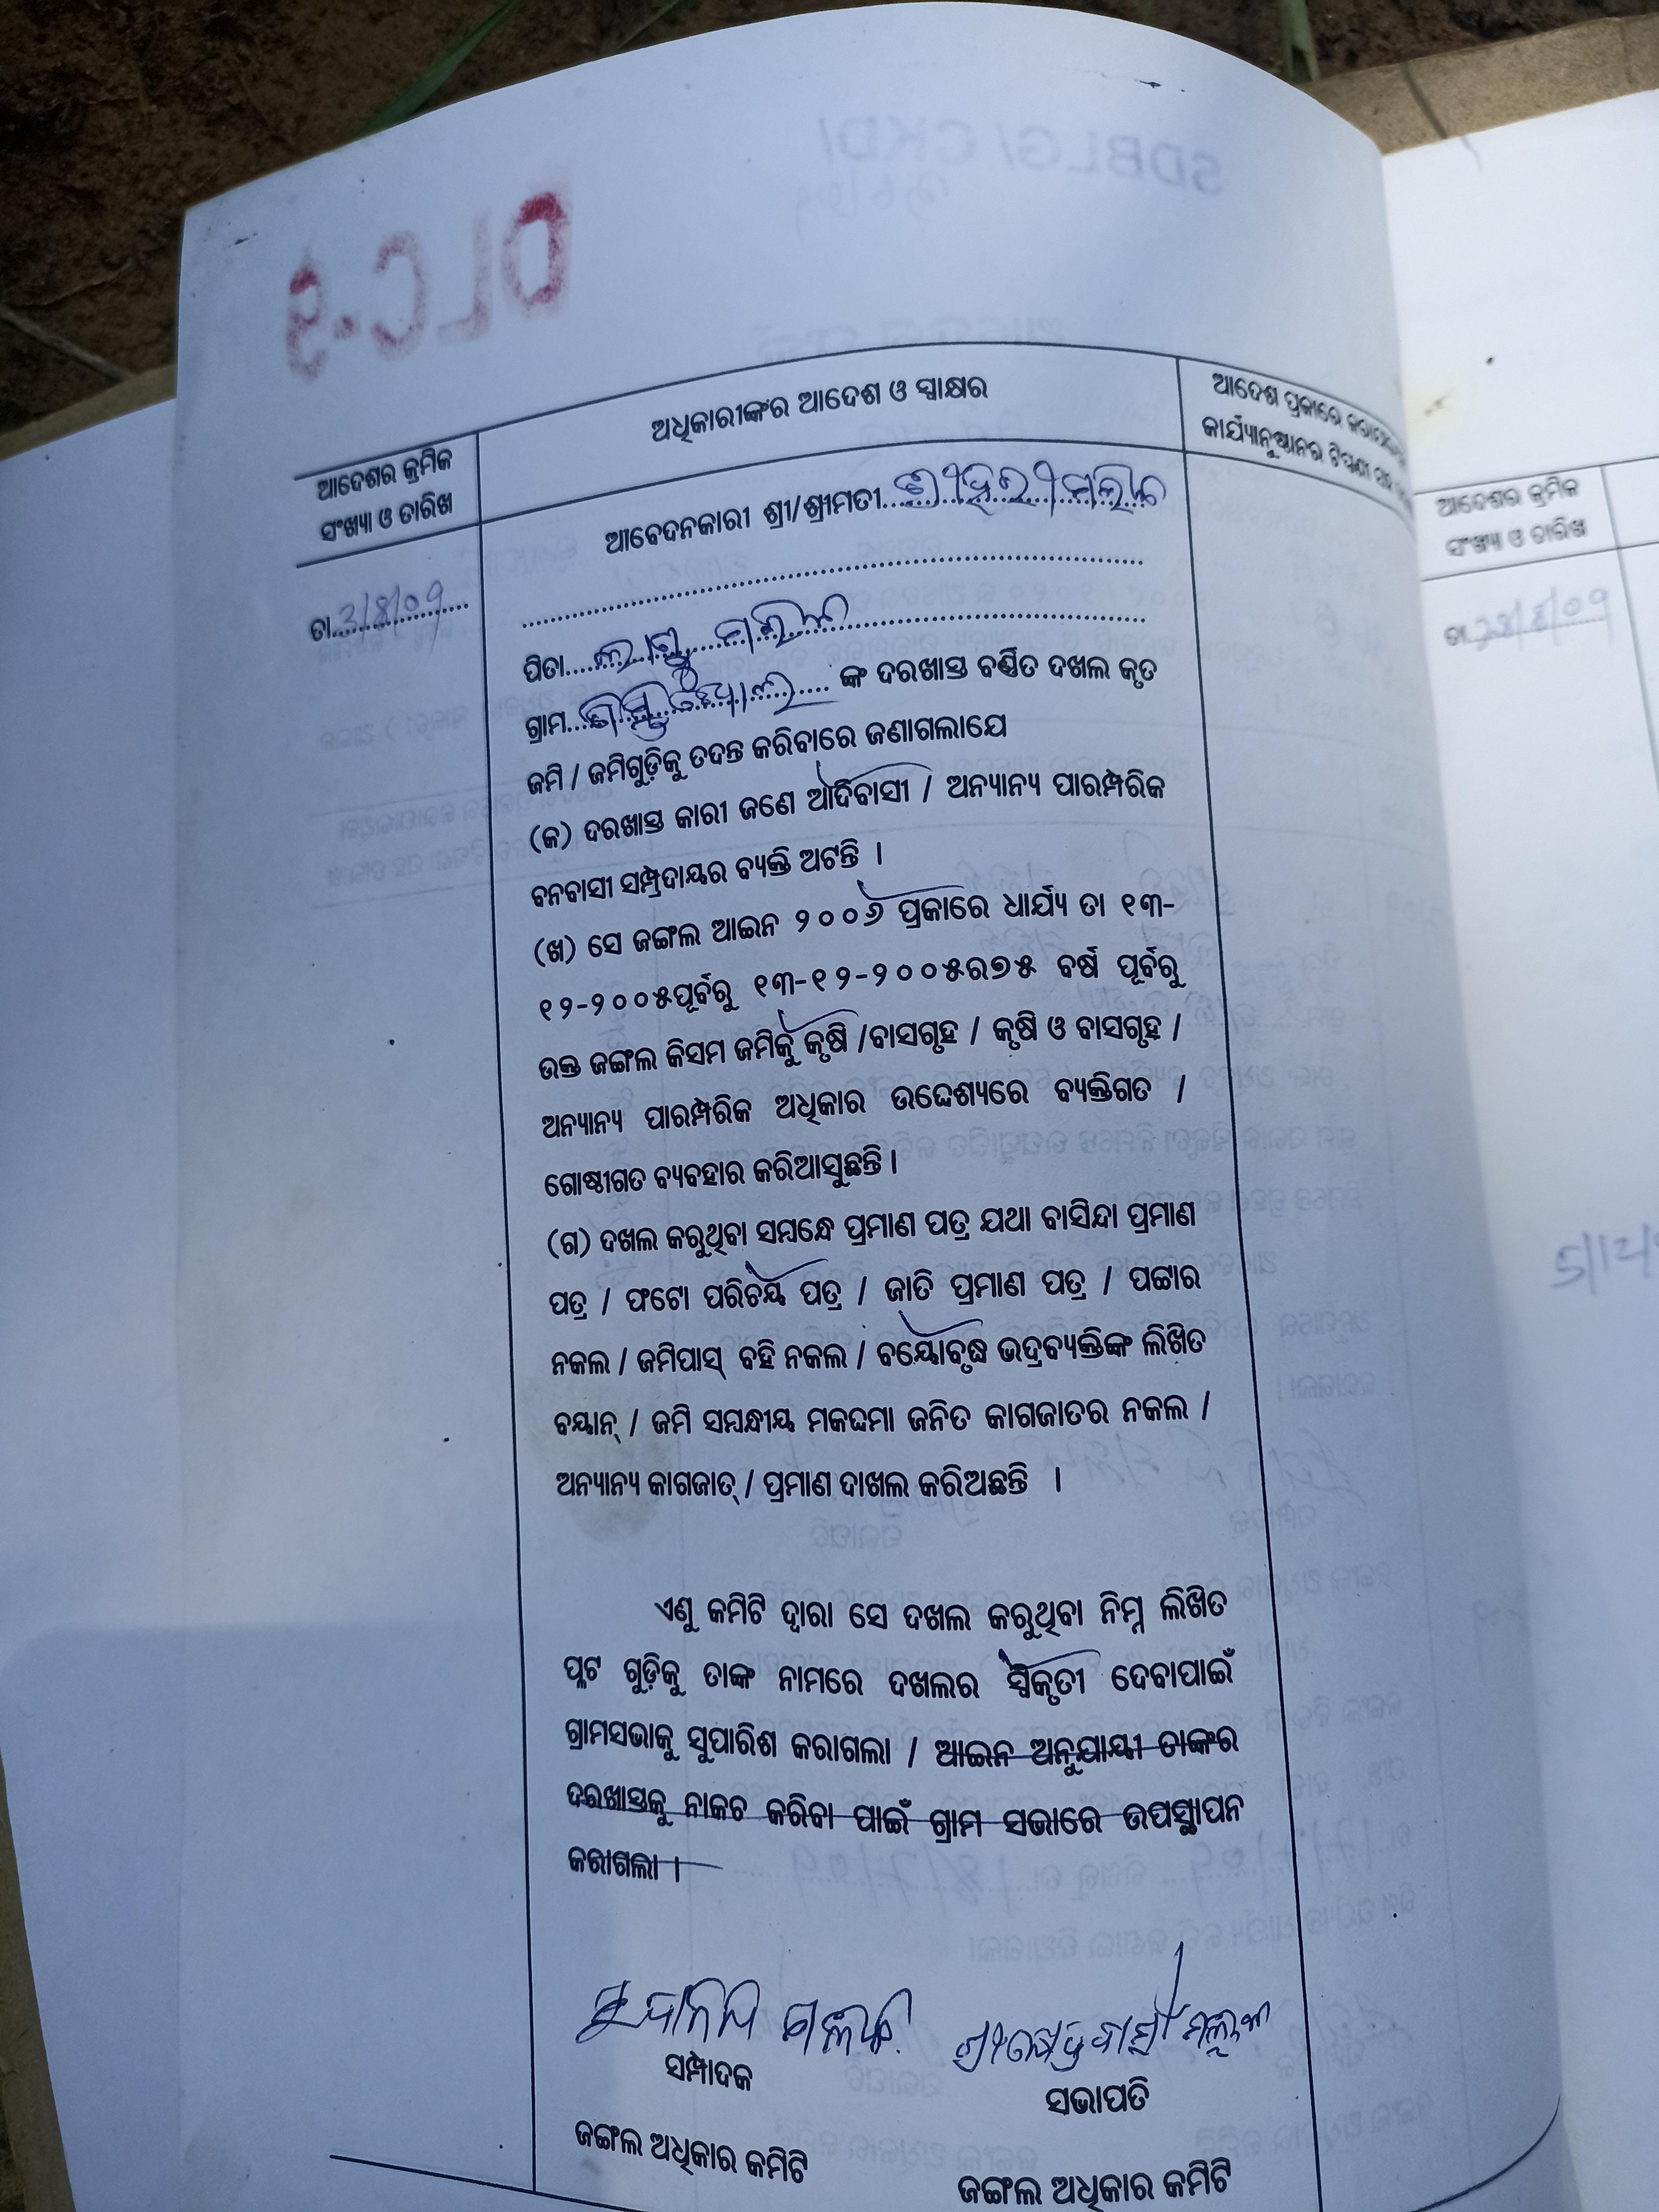 ଆଦେଶର କ୍ରମିକ
ସଂଖ୍ୟା ଓ ତାରିଖ
ଅଧିକାରୀଙ୍କର ଆଦେଶ ଓ ସ୍ୱାକ୍ଷର
ଆଦେଶ ପ୍ରକାରେ
କାର୍ଯ୍ୟାନୁଷ୍ଠାନର ଟିପ୍ପଣୀ
ତା.3/8/09
ଆବେଦନକାରୀ ଶ୍ରୀ/ଶ୍ରୀମତୀ
ପିତା
ଗ୍ରାମ ଙ୍କ ଦରଖାସ୍ତ ବର୍ଣ୍ଣିତ ଦଖଲ କୃତ
ଜମି / ଜମିଗୁଡ଼ିକୁ ତଦନ୍ତ କରିବାରେ ଜଣାଗଲାଯେ
(କ) ଦରଖାସ୍ତ କାରୀ ଜଣେ ଆଦିବାସୀ / ଅନ୍ୟାନ୍ୟ ପାରମ୍ପରିକ
ବନବାସୀ ସମ୍ପ୍ରଦାୟର ବ୍ୟକ୍ତି ଅଟନ୍ତି ।
(ଖ) ସେ ଜଙ୍ଗଲ ଆଇନ ୨୦୦୬ ପ୍ରକାରେ ଧାର୍ଯ୍ୟ ତା ୧୩-
୧୨-୨୦୦୫ପୂର୍ବରୁ ୧୩-୧୨-୨୦୦୫ର୭୫ ବର୍ଷ ପୂର୍ବରୁ
ଉକ୍ତ ଜଙ୍ଗଲ କିସମ ଜମିକୁ କୃଷି /ବାସଗୃହ / କୃଷି ଓ ବାସଗୃହ /
ଅନ୍ୟାନ୍ୟ ପାରମ୍ପରିକ ଅଧିକାର ଉଦ୍ଦେଶ୍ୟରେ ବ୍ୟକ୍ତିଗତ /
ଗୋଷ୍ଠୀଗତ ବ୍ୟବହାର କରିଆସୁଛନ୍ତି ।
(ଗ) ଦଖଲ କରୁଥିବା ସମ୍ବନ୍ଧେ ପ୍ରମାଣ ପତ୍ର ଯଥା ବାସିନ୍ଦା ପ୍ରମାଣ
ପତ୍ର / ଫଟୋ ପରିଚୟ ପତ୍ର / ଜାତି ପ୍ରମାଣ ପତ୍ର / ପଟ୍ଟାର
ନକଲ / ଜମିପାସ୍ ବହି ନକଲ / ବୟୋବୃଦ୍ଧ ଭଦ୍ରବ୍ୟକ୍ତିଙ୍କ ଲିଖିତ
ବୟାନ୍ / ଜମି ସମ୍ବନ୍ଧୀୟ ମକଦ୍ଦମା ଜନିତ କାଗଜାତର ନକଲ /
ଅନ୍ୟାନ୍ୟ କାଗଜାତ୍ / ପ୍ରମାଣ ଦାଖଲ କରିଅଛନ୍ତି ।
ଏଣୁ କମିଟି ଦ୍ୱାରା ସେ ଦଖଲ କରୁଥିବା ନିମ୍ନ ଲିଖିତ
ପ୍ଳଟ ଗୁଡ଼ିକୁ ତାଙ୍କ ନାମରେ ଦଖଲର ସ୍ୱିକୃତୀ ଦେବାପାଇଁ
ଗ୍ରାମସଭାକୁ ସୁପାରିଶ କରାଗଲା / ଆଇନ ଅନୁଯାୟୀ ତାଙ୍କର
ଦରଖାସ୍ତକୁ ନାକଚ କରିବା ପାଇଁ ଗ୍ରାମ ସଭାରେ ଉପସ୍ଥାପନ
କରାଗଲା ।
ସମ୍ପାଦକ
ଜଙ୍ଗଲ ଅଧିକାର କମିଟି
ସଭାପତି
ଜଙ୍ଗଲ ଅଧିକାର କମିଟି
ଆଦେଶର କ୍ରମିକ
ସଂଖ୍ୟା ଓ ତାରିଖ
ତା.28/8/09